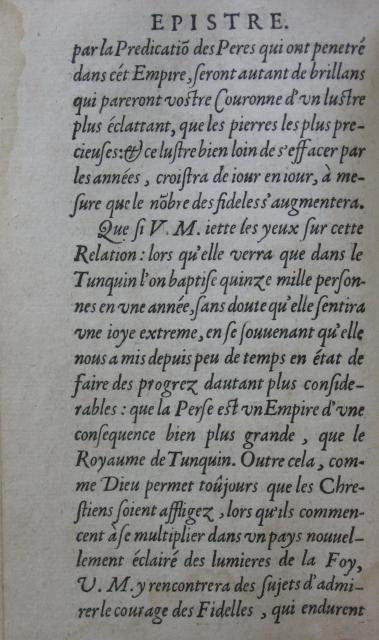 EPISTRE.
par la Predicatiõ des Peres qui ont penetré
dans cét Empire, seront autant de brillans
qui pareront vostre Couronne d'vn lustre
plus éclattant, que les pierres les plus pre-
cieuses: & ce lustre bien loin de s'effacer par
les années, croistra de iour en iour, à me-
sure que le nõbre des fideles s'augmentera.
Que si V. M. iette les yeux sur cette
Relation: lors qu'elle verra que dans le
Tunquin l'on baptise quinze mille person-
nes en vne année, sans doute qu'elle sentira
vne ioye extreme, en se souuenant qu'elle
nous a mis depuis peu de temps en état de
faire des progrez dautant plus conside-
rables: que la Perse est vn Empire d'vne
consequence bien plus grande, que le
Royaume de Tunquin. Outre cela, com-
me Dieu permet toûjours que les Chre-
stiens soient affligez, lors qu'ils commen-
cent à se multiplier dans vn pays nouuel-
lement éclairé des lumieres de la Foy,
V. M. y rencontrera des sujets d'admi-
rer le courage des Fidelles, qui endurent